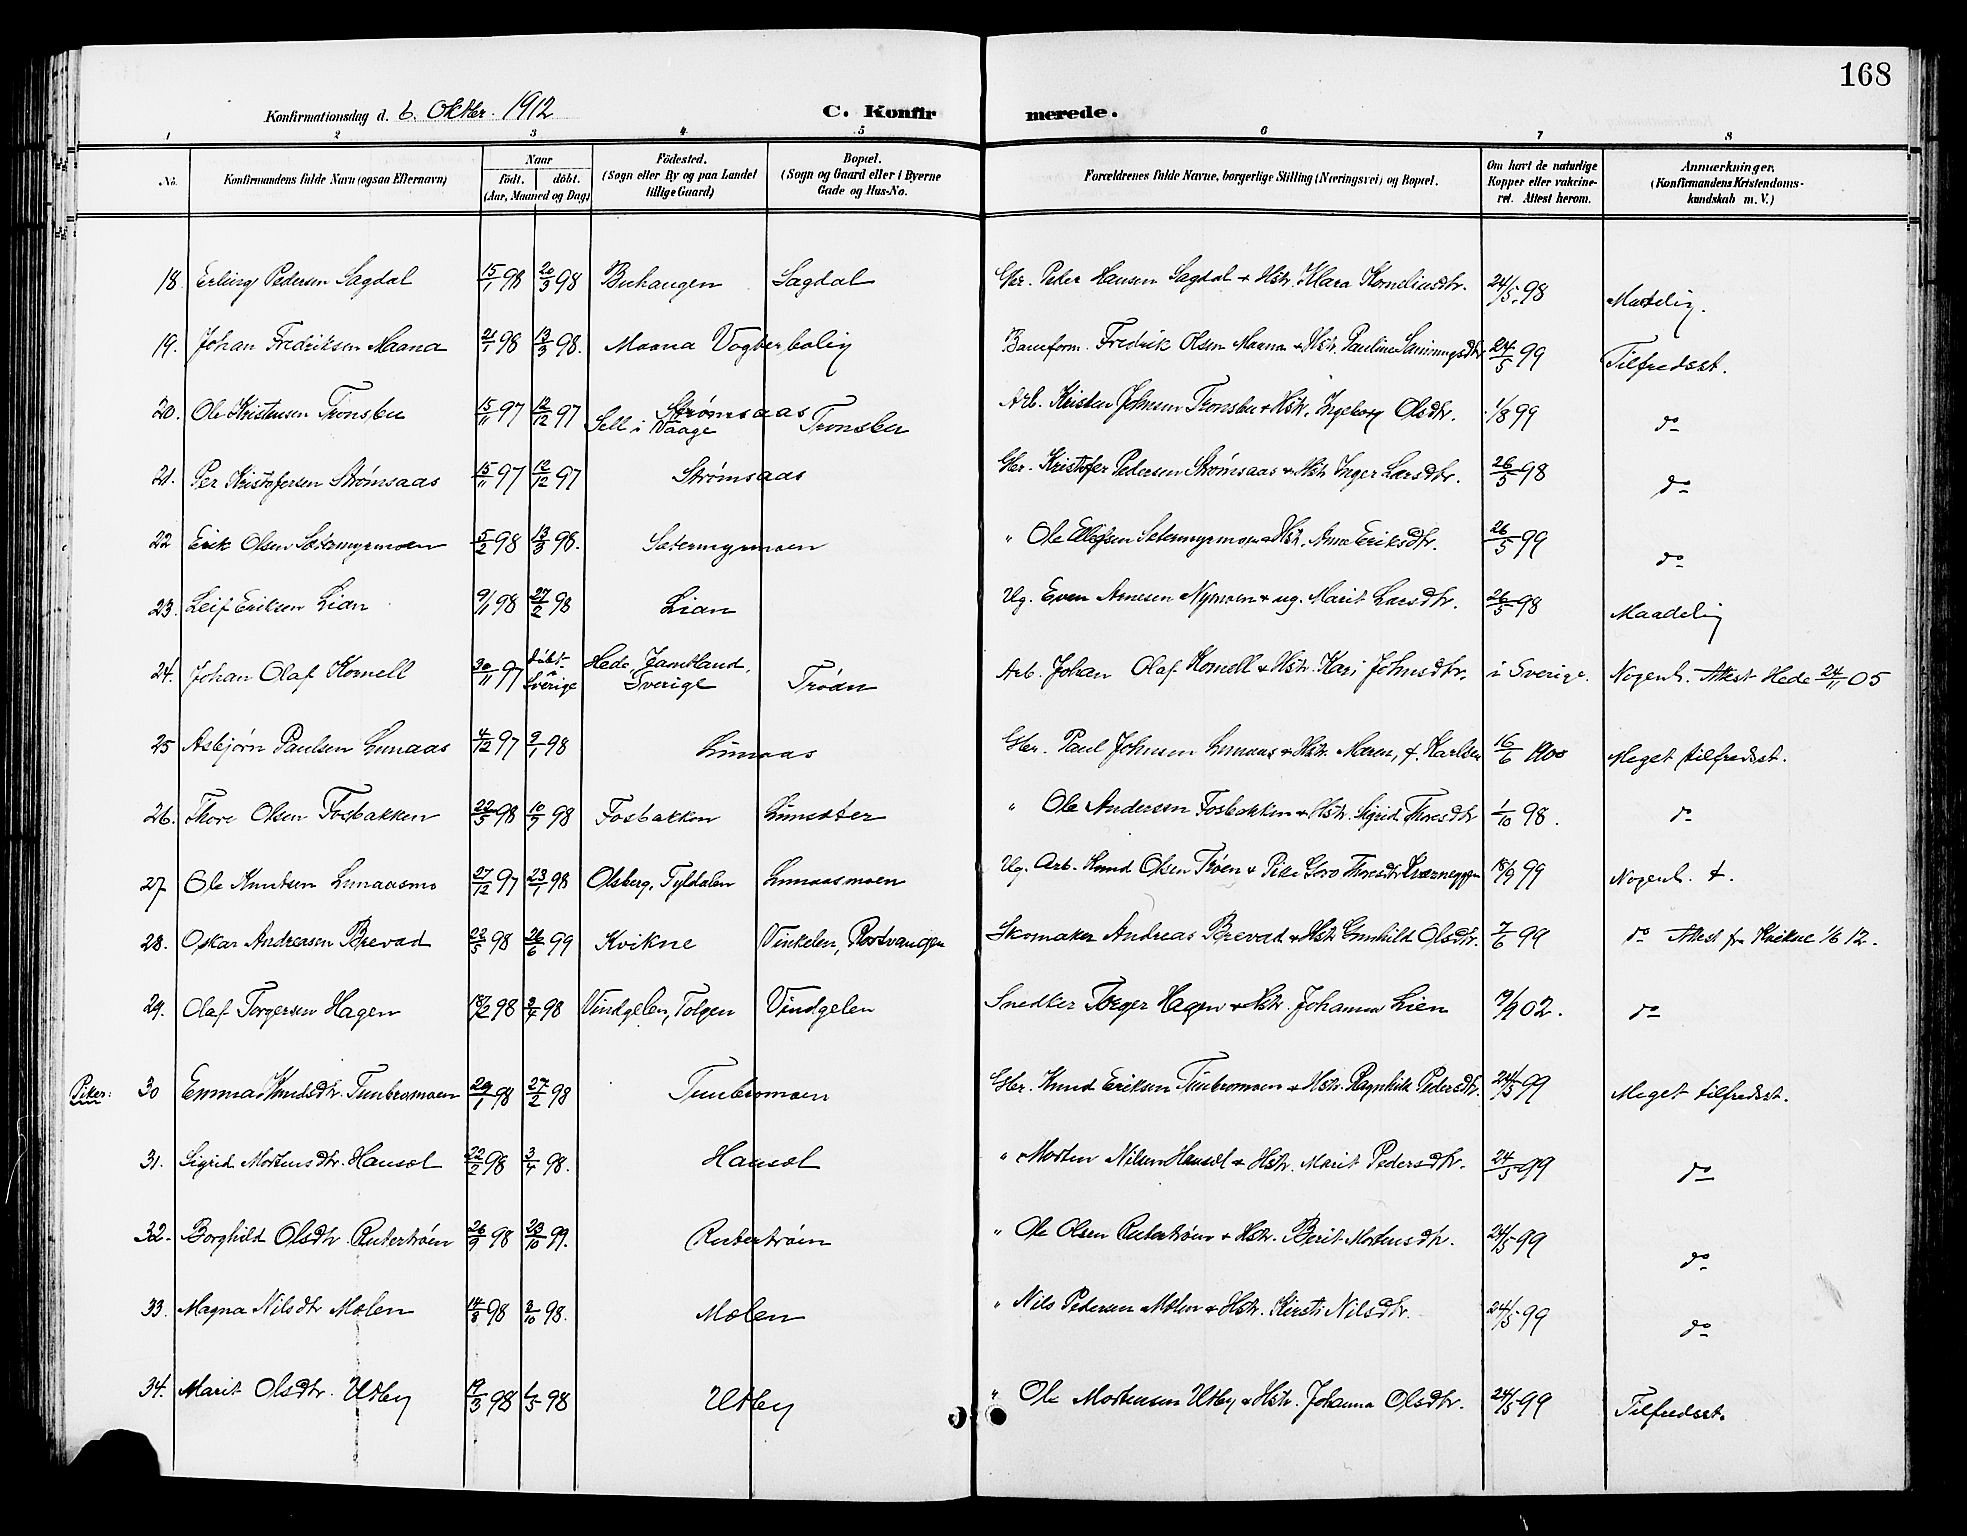 168
Konfirmationsdag d. 6. Oktbr. 1912 C. Konfir merede.
1 2 3 4 5 6 7 8
No. Konfirmandens fulde Navn (ogsaa Efternavn) Naar født. døbt. (Aar, Maaned og Dag) Fødested. (Sogn eller By og paa Landet tillige Gaard) Bopæl. (Sogn og Gaard eller i Byerne Gade og Hus-No. Forældrenes fulde Navne, borgerlige Stilling (Næringsvei) og Bopæl. Om havt de naturlige Kopper eller vakcineret. Attest herom. Anmærkninger. (Konfirmandens Kristendomskundskab m. V.)
18. Erling Pedersen Sagdal 15/1 98 20/3 98 Buhaugen Sagdal Gbr. Peder Hansen Sagdal & Hstr. Klara Korneliusdtr. 24/5 98 Maadelig.
19. Johan Fredriksen Maana 21/1 98 13/3 98. Maana Vogterbolig Baneform. Fredrik Olsen Maana & Hstr. Pauline 24/5 99 Tilfredsst.
20. Ole Kristensen Tronsbu 15/11 97 12/12 97 Strømsaas Sell i Vaage Tronsbu Arb. Kristen Johnsen Tronsbu & Hstr. Ingeborg Olsdtr. 1/8 99 do
21. Per Kristofersen Strømsaas 15/11 97 12/12 97 Strømsaas Gbr. Kristofer Pedersen Strømsaas & Hstr Inger Larsdtr. 26/5 98 do
22 Erik Olsen Sætermyrmoen 5/2 98 13/3 98. Sætermyrmoen " Ole Ellefsen Sætermyrmoen & Hstr. Anne Eriksdtr. 26/5 99 do
23. Leif Eriksen Lian 9/1 98 27/2 98 Lian Ug. Even Arnesen Nymoen & ug. Marit Larsdtr. 26/5 98 Maadelig
24. Johan Olaf Kornell 30/11 97 døbt i Sverige Hede, Jamtland, Sverige Trøan Arb. Johan Olaf Kornell & Hstr. Kari Johnsdtr. i Sverige. Nogenl. Attest Hede 24/11 05
25 Asbjørn Paulsen Lunaas 4/12 97 9/1 98 Lunaas Gbr. Paul Johnsen Lunaas & Hstr. Maren, f. Karlsen 16/6 1900 Meget tilfredsst.
26. Thore Olsen Fosbakken 22/5 98 10/7 98 Fosbakken Lunsæter " Ole Andersen Fosbakken & Hstr. Sigrid Thoresdtr 1/10 98. do
27. Ole Knutsen Lunaasmo 27/12 97 23/1 98 Olsberg, Tyldalen Lunaasmoen Ug. Arb. Knud Olsen Trøen & Pike Goro Thoresdtr Kværneggen 18/9 99 Nogenl. +.
28. Oskar Andreasen Brevad 22/5 98 26/6 99 Kvikne Vinkelen, Rostvangen Skomaker Andreas Brevad & Hstr Gunhild Olsdtr. 7/6 99 do Attest fr. Kvikne 1/6 12.
29. Olaf Torgersen Hagen 18/2 98 3/4 98 Vindgelen, Tolgen Vindgelen Snedker Torger Hagen & Hstr. Johanna Lien 19/9 02. do
Piker: 30 Emma Knudsdtr. Tunbromoen 29/1 98 27/2 98 Tunbromoen Gbr. Knud Eriksen Tunbromoen & Hstr. Ragnhild Pedersdtr. 24/5 99 Meget tilfredsst.
31. Sigrid Mortensdtr. Hausæt 22/2 98 3/4 98. Hausæt " Morten Nilsen Hausæt & Hstr. Marit Pedersdtr. 24/5 99 do
32. Borghild Olsdtr. Rutertrøen 26/9 98 23/10 99. Rutertrøen " Ole Olsen Rutertrøen & Hstr. Berit Mortensdtr. 24/5 99 do
33. Magna Nilsdtr Molen 14/8 98 2/10 98. Molen " Nils Pedersen Molen & Hstr. Kirsti Nilsdtr. 24/5 99 do
34. Marit Olsdtr. Utby 19/3 98 1/5 98 Utby " Ole Mortensen Utby & Hstr. Johanna Olsdtr. 24/5 99 Tilfredsst.